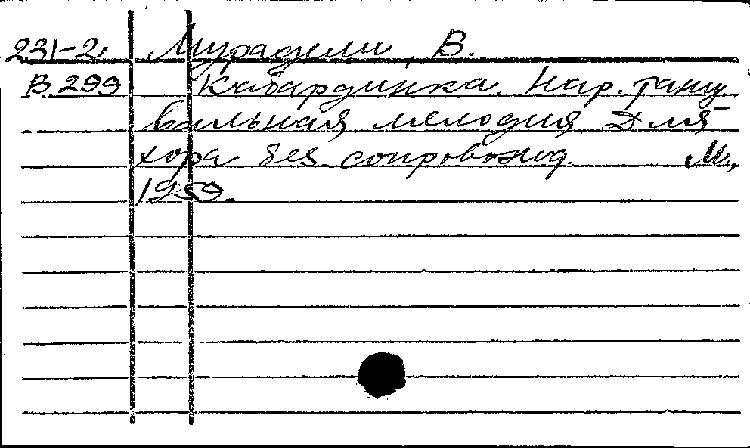 221-2 Мурадели, В.
В.299 Кабардинка. Нар. танц
вальная мелодия Для
хора без сопровожд. М.,
1959.